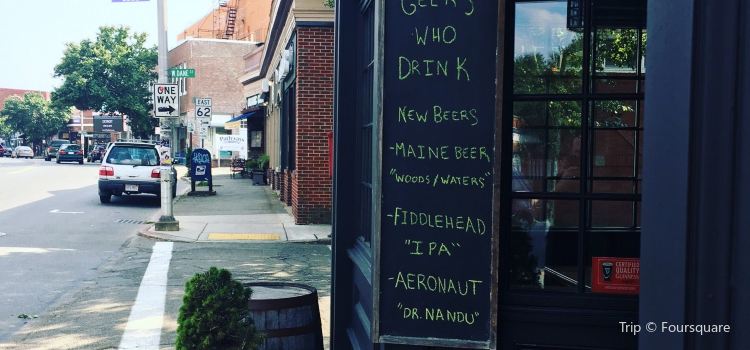 GEEKS
WHO
DRINK
NEW BEERS
-MAINE BEER
"WOODS/WATERS"
-FIDDLEHEAD
"IPA"
-AERONAUT
"DR. NANDU"
ONE
WAY
EAST
62
CERTIFIED
QUALITY
GUINNESS
Trip © Foursquare